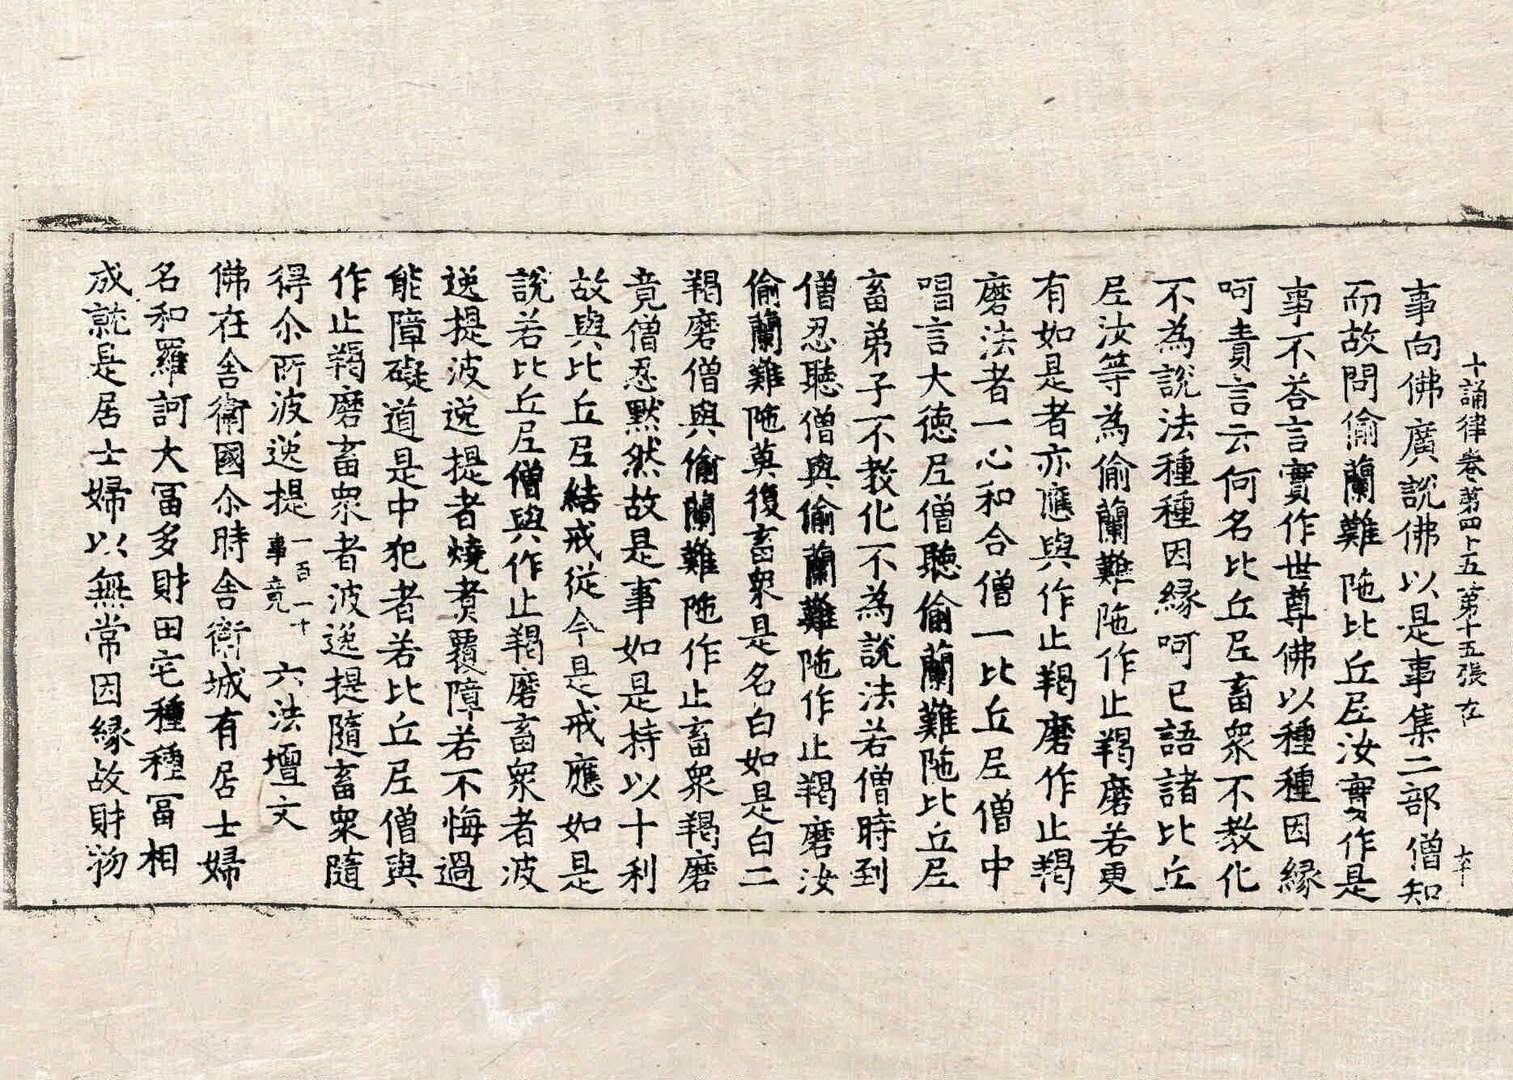 十誦律卷第四十五第十五張 左
事向佛廣說佛以是事集二部僧知
而故問偷蘭難陁比丘尼汝實作是
事不荅言實作世尊佛以種種因緣
呵責言云何名比丘尼畜衆不教化
不為說法種種因緣呵已語諸比丘
尼汝等為偷蘭難陁作止羯磨若更
有如是者亦應與作止羯磨作止羯
磨法者一心和合僧一比丘尼僧中
唱言大德尼僧聽偷蘭難陁比丘尼
畜弟子不教化不為說法若僧時到
僧忍聽僧與偷蘭難陁作止羯磨汝
偷蘭難陁莫復畜衆是名白如是白二
羯磨僧與偷蘭難陁作止畜衆羯磨
竟僧忍默然故是事如是持以十利
故與比丘尼結戒從今是戒應如是
說若比丘尼僧與作止羯磨畜衆者波
逸提波逸提者燒煑覆障若不悔過
能障礙道是中犯者若比丘尼僧與
作止羯磨畜衆者波逸提隨畜衆隨
得尒所波逸提 一百一十事竟 六法壇文
佛在舍衛國尒時舍衛城有居士婦
名和羅訶大冨多財田宅種種冨相
成就是居士婦以無常因緣故財物